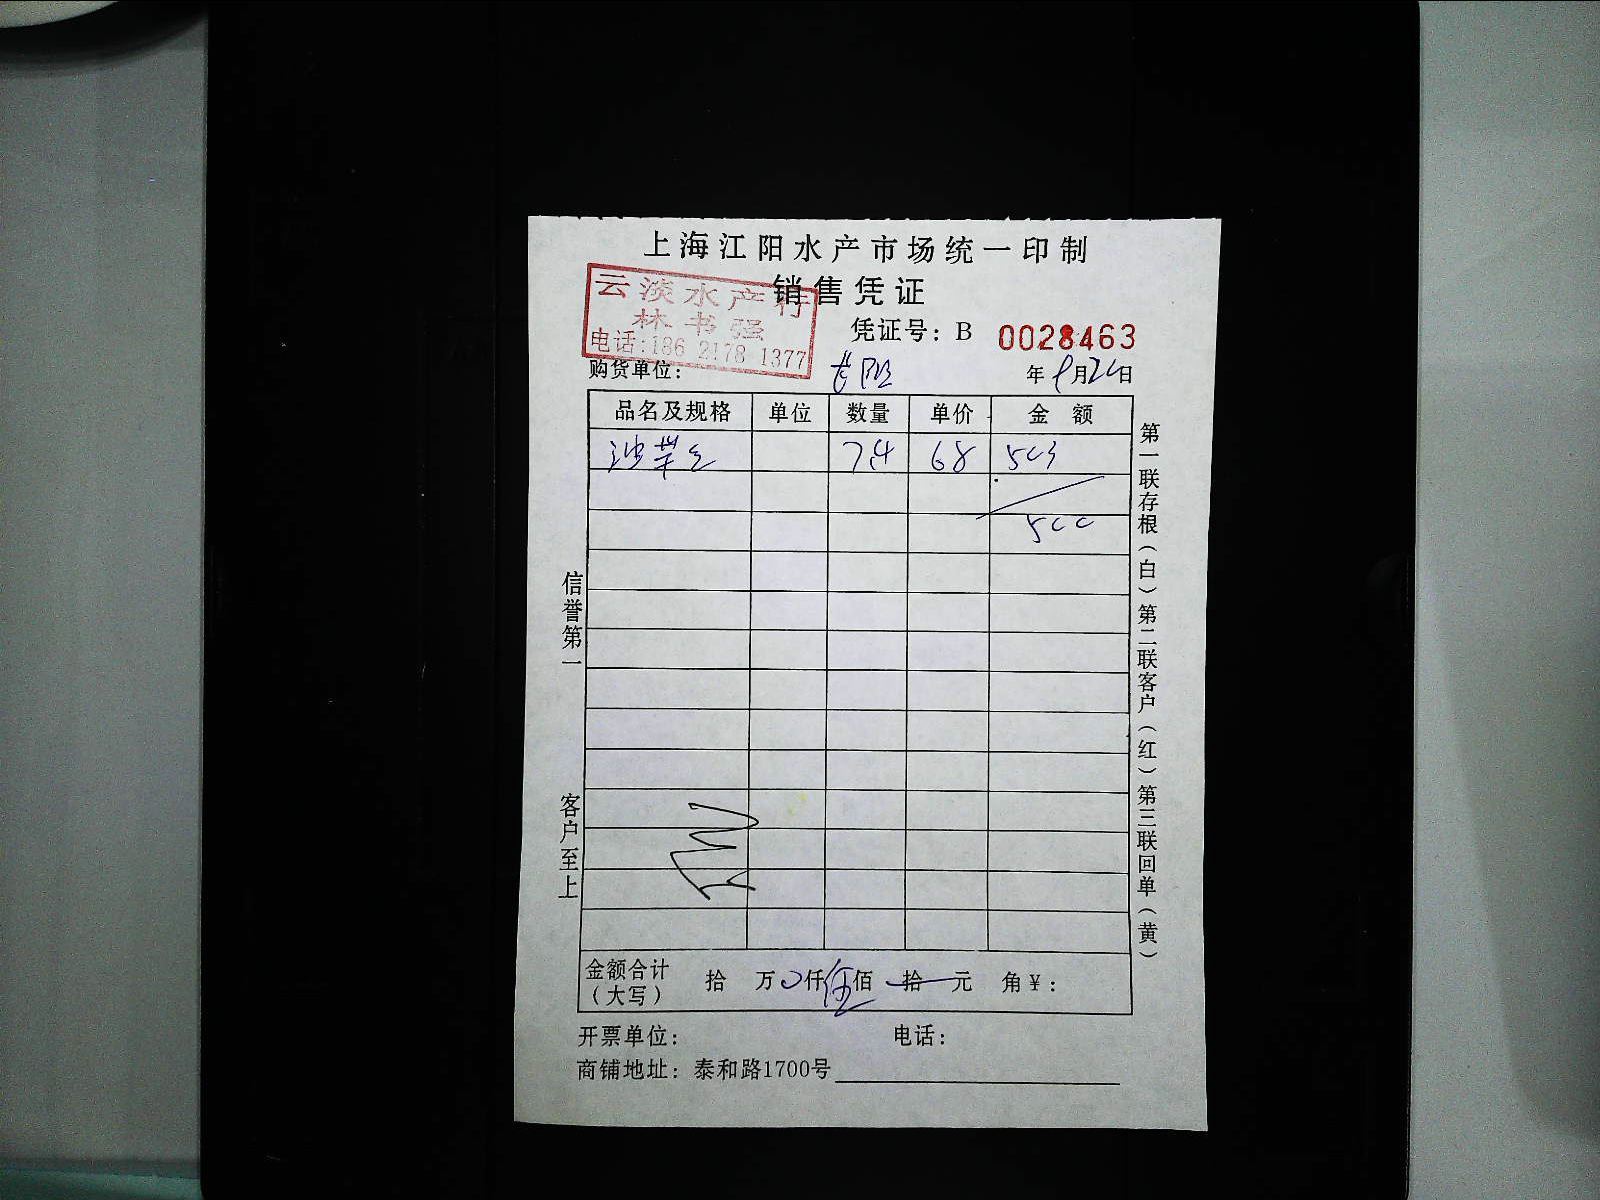 上海江阳水产市场统一印制
销售凭证
云淡水产行
林书强
电话:186 2178 1377
凭证号: B 0028463
购货单位:
年 月 日
品名及规格 单位 数量 单价 金 额
7.4 68 503
500
信誉第一
客户至上
第一联存根(白)第二联客户(红)第三联回单(黄)
金额合计 拾 万 仟伍佰 拾 元 角¥:
(大写)
开票单位: 电话:
商铺地址: 泰和路1700号